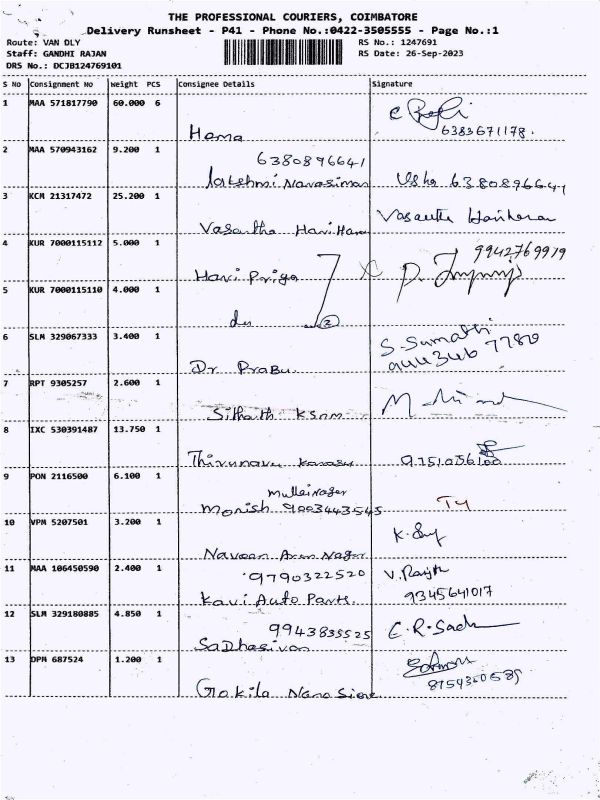 THE PROFESSIONAL COURIERS, COIMBATORE
Delivery Runsheet - P41 - Phone No.:0422-3505555 - Page No.:1
Route: VAN DLY RS No.: 1247691
Staff: GANDHI RAJAN RS Date: 26-Sep-2023
DRS No.: DCJB124769101
S No Consignment No Weight PCS Consignee Details Signature
1 MAA 571817790 60.000 6
Hema 6383671178.
2 MAA 570943162 9.200 1
6380896641
lakshmi Narasiman Usha 6380896641
3 KCM 21317472 25.200 1
Vasantha Hari Haran Vasantha Hariharan
4 KUR 7000115112 5.000 1 9942769919
Hari Priya
5 KUR 7000115110 4.000 1
do 2
6 SLM 329067333 3.400 1 S. Sumathi
Dr Prabu 944346 7780
7 RPT 9305257 2.600 1
8 IXC 530391487 13.750 1
Thirunavu
9 PON 2116500 6.100 1
Mullai Nagar
Monish 9003443545
10 VPM 5207501 3.200 1
Naveen Arun Nagar
11 MAA 106450590 2.400 1
9790322520
Kavi Auto Parts. 9345641017
12 SLM 329180885 4.850 1
9943835525
Sadhasivan
13 DPM 687524 1.200 1
Gokila